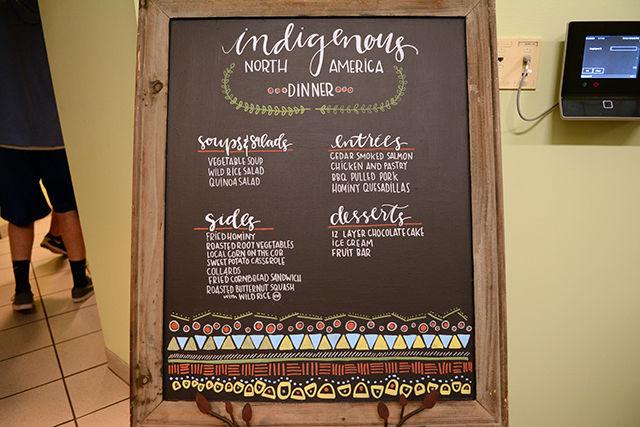 indigenous
NORTH AMERICA
DINNER
soups & salads
VEGETABLE SOUP
WILD RICE SALAD
QUINOA SALAD
entrées
CEDAR SMOKED SALMON
CHICKEN AND PASTRY
BBQ PULLED PORK
HOMINY QUESADILLAS
sides
FRIED HOMINY
ROASTED ROOT VEGETABLES
LOCAL CORN ON THE COB
SWEET POTATO CASSEROLE
COLLARDS
FRIED CORNBREAD SANDWICH
ROASTED BUTTERNUT SQUASH
with WILD RICE
desserts
12 LAYER CHOCOLATE CAKE
ICE CREAM
FRUIT BAR